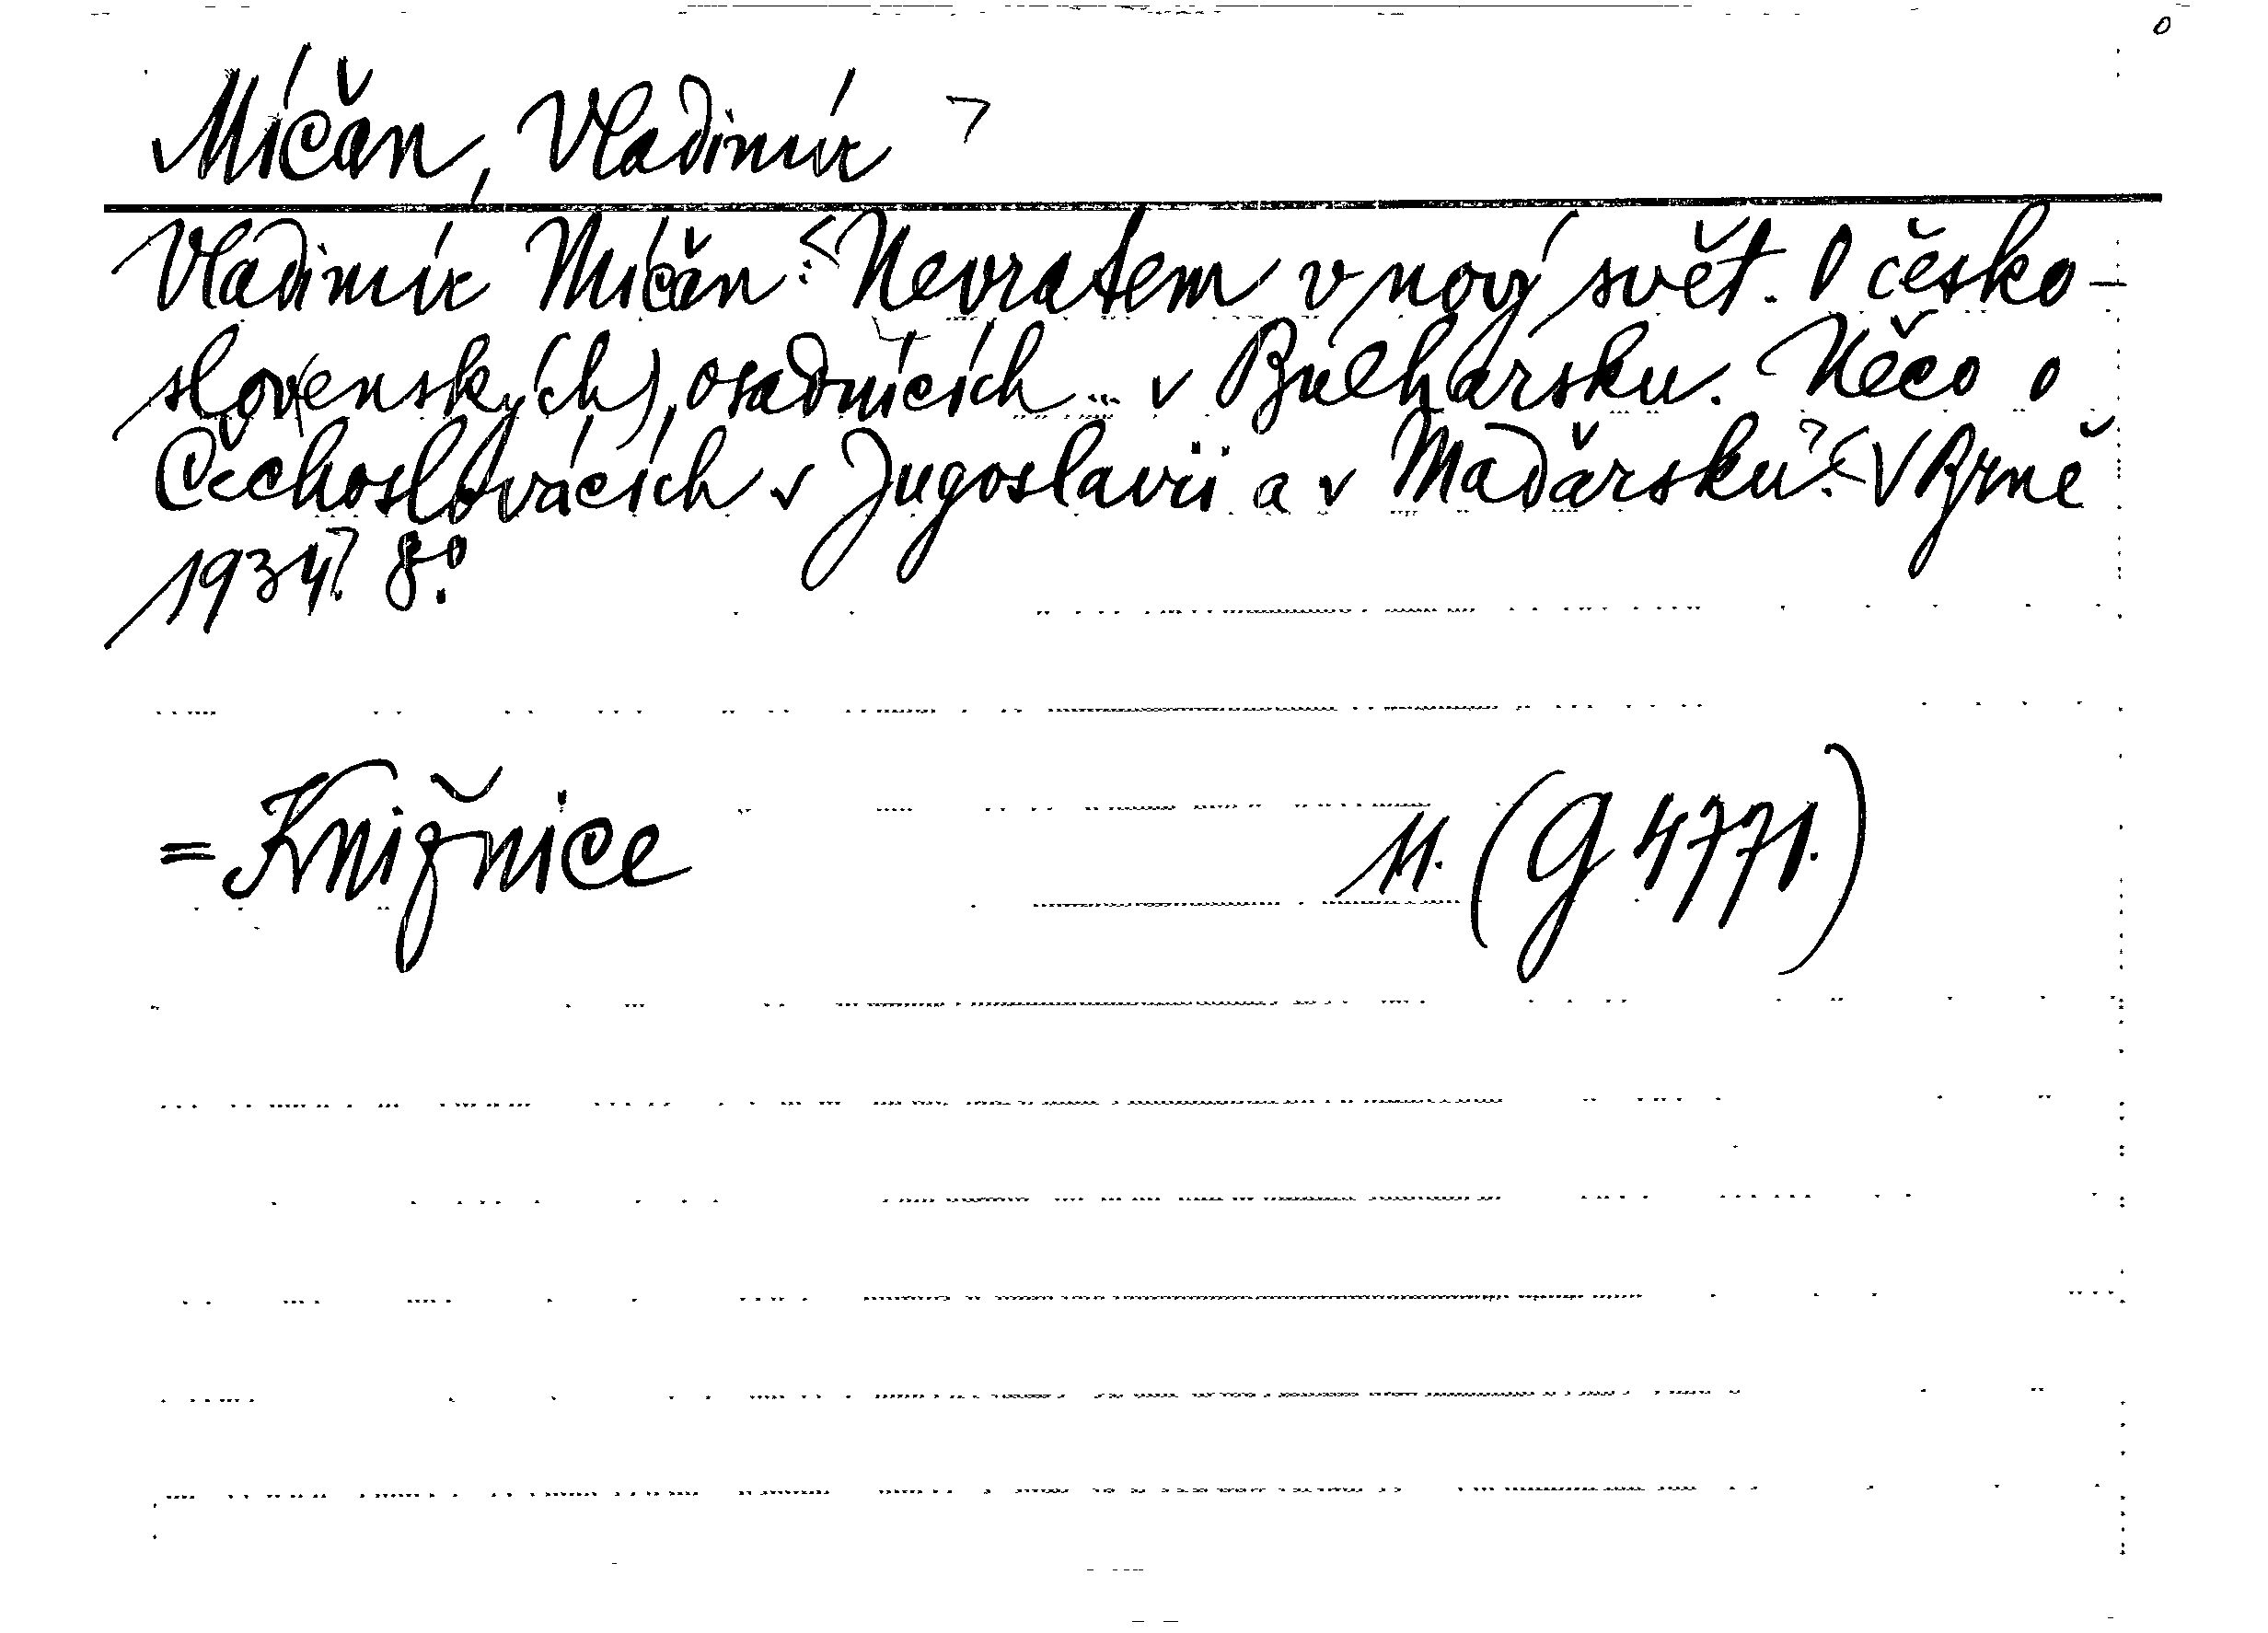 Míčan, Vladimír
Vladimír Míčan: Nevratem v nový svět. O česko-
sloven(ských) osadnících ... v Bulharsku. Něco o
Čechoslovácích v Jugoslavii a v Maďarsku. V Brně
1934. 8°.
= Knižnice 11. (G 4771.)